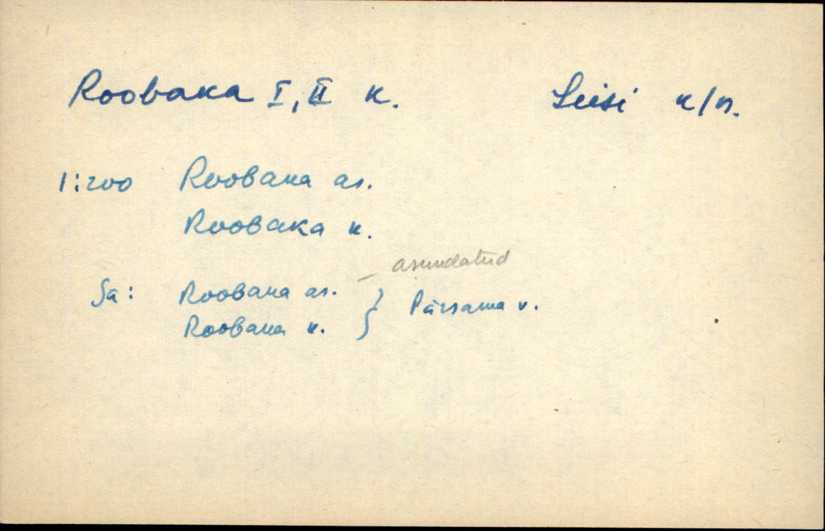 Roobaka I, II k. Leisi k/n.
1:200 Roobaka as.
Roobaka k.
Sa: Roobaka as. – asundatud
Roobaka k. } Pärsama v.